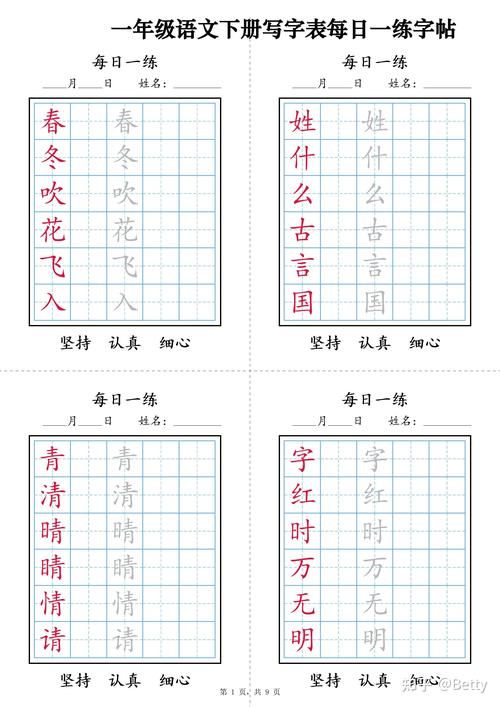 一年级语文下册写字表每日一练字帖
每日一练
____月____日 姓名：________
春 春
冬 冬
吹 吹
花 花
飞 飞
入 入
坚持 认真 细心
每日一练
____月____日 姓名：________
姓 姓
什 什
么 么
古 古
言 言
国 国
坚持 认真 细心
每日一练
____月____日 姓名：________
青 青
清 清
晴 晴
睛 睛
情 情
请 请
坚持 认真 细心
每日一练
____月____日 姓名：________
字 字
红 红
时 时
万 万
无 无
明 明
坚持 认真 细心
第 1 页，共 9 页
知乎 @Betty